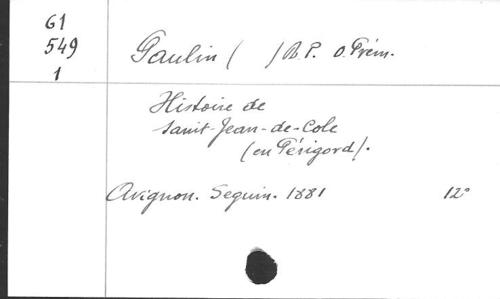 61
549
1
Gaulin ( ) R.P. O. Prém.
Histoire de
Saint-Jean-de-Cole
(en Périgord).
Avignon. Seguin. 1881 12°